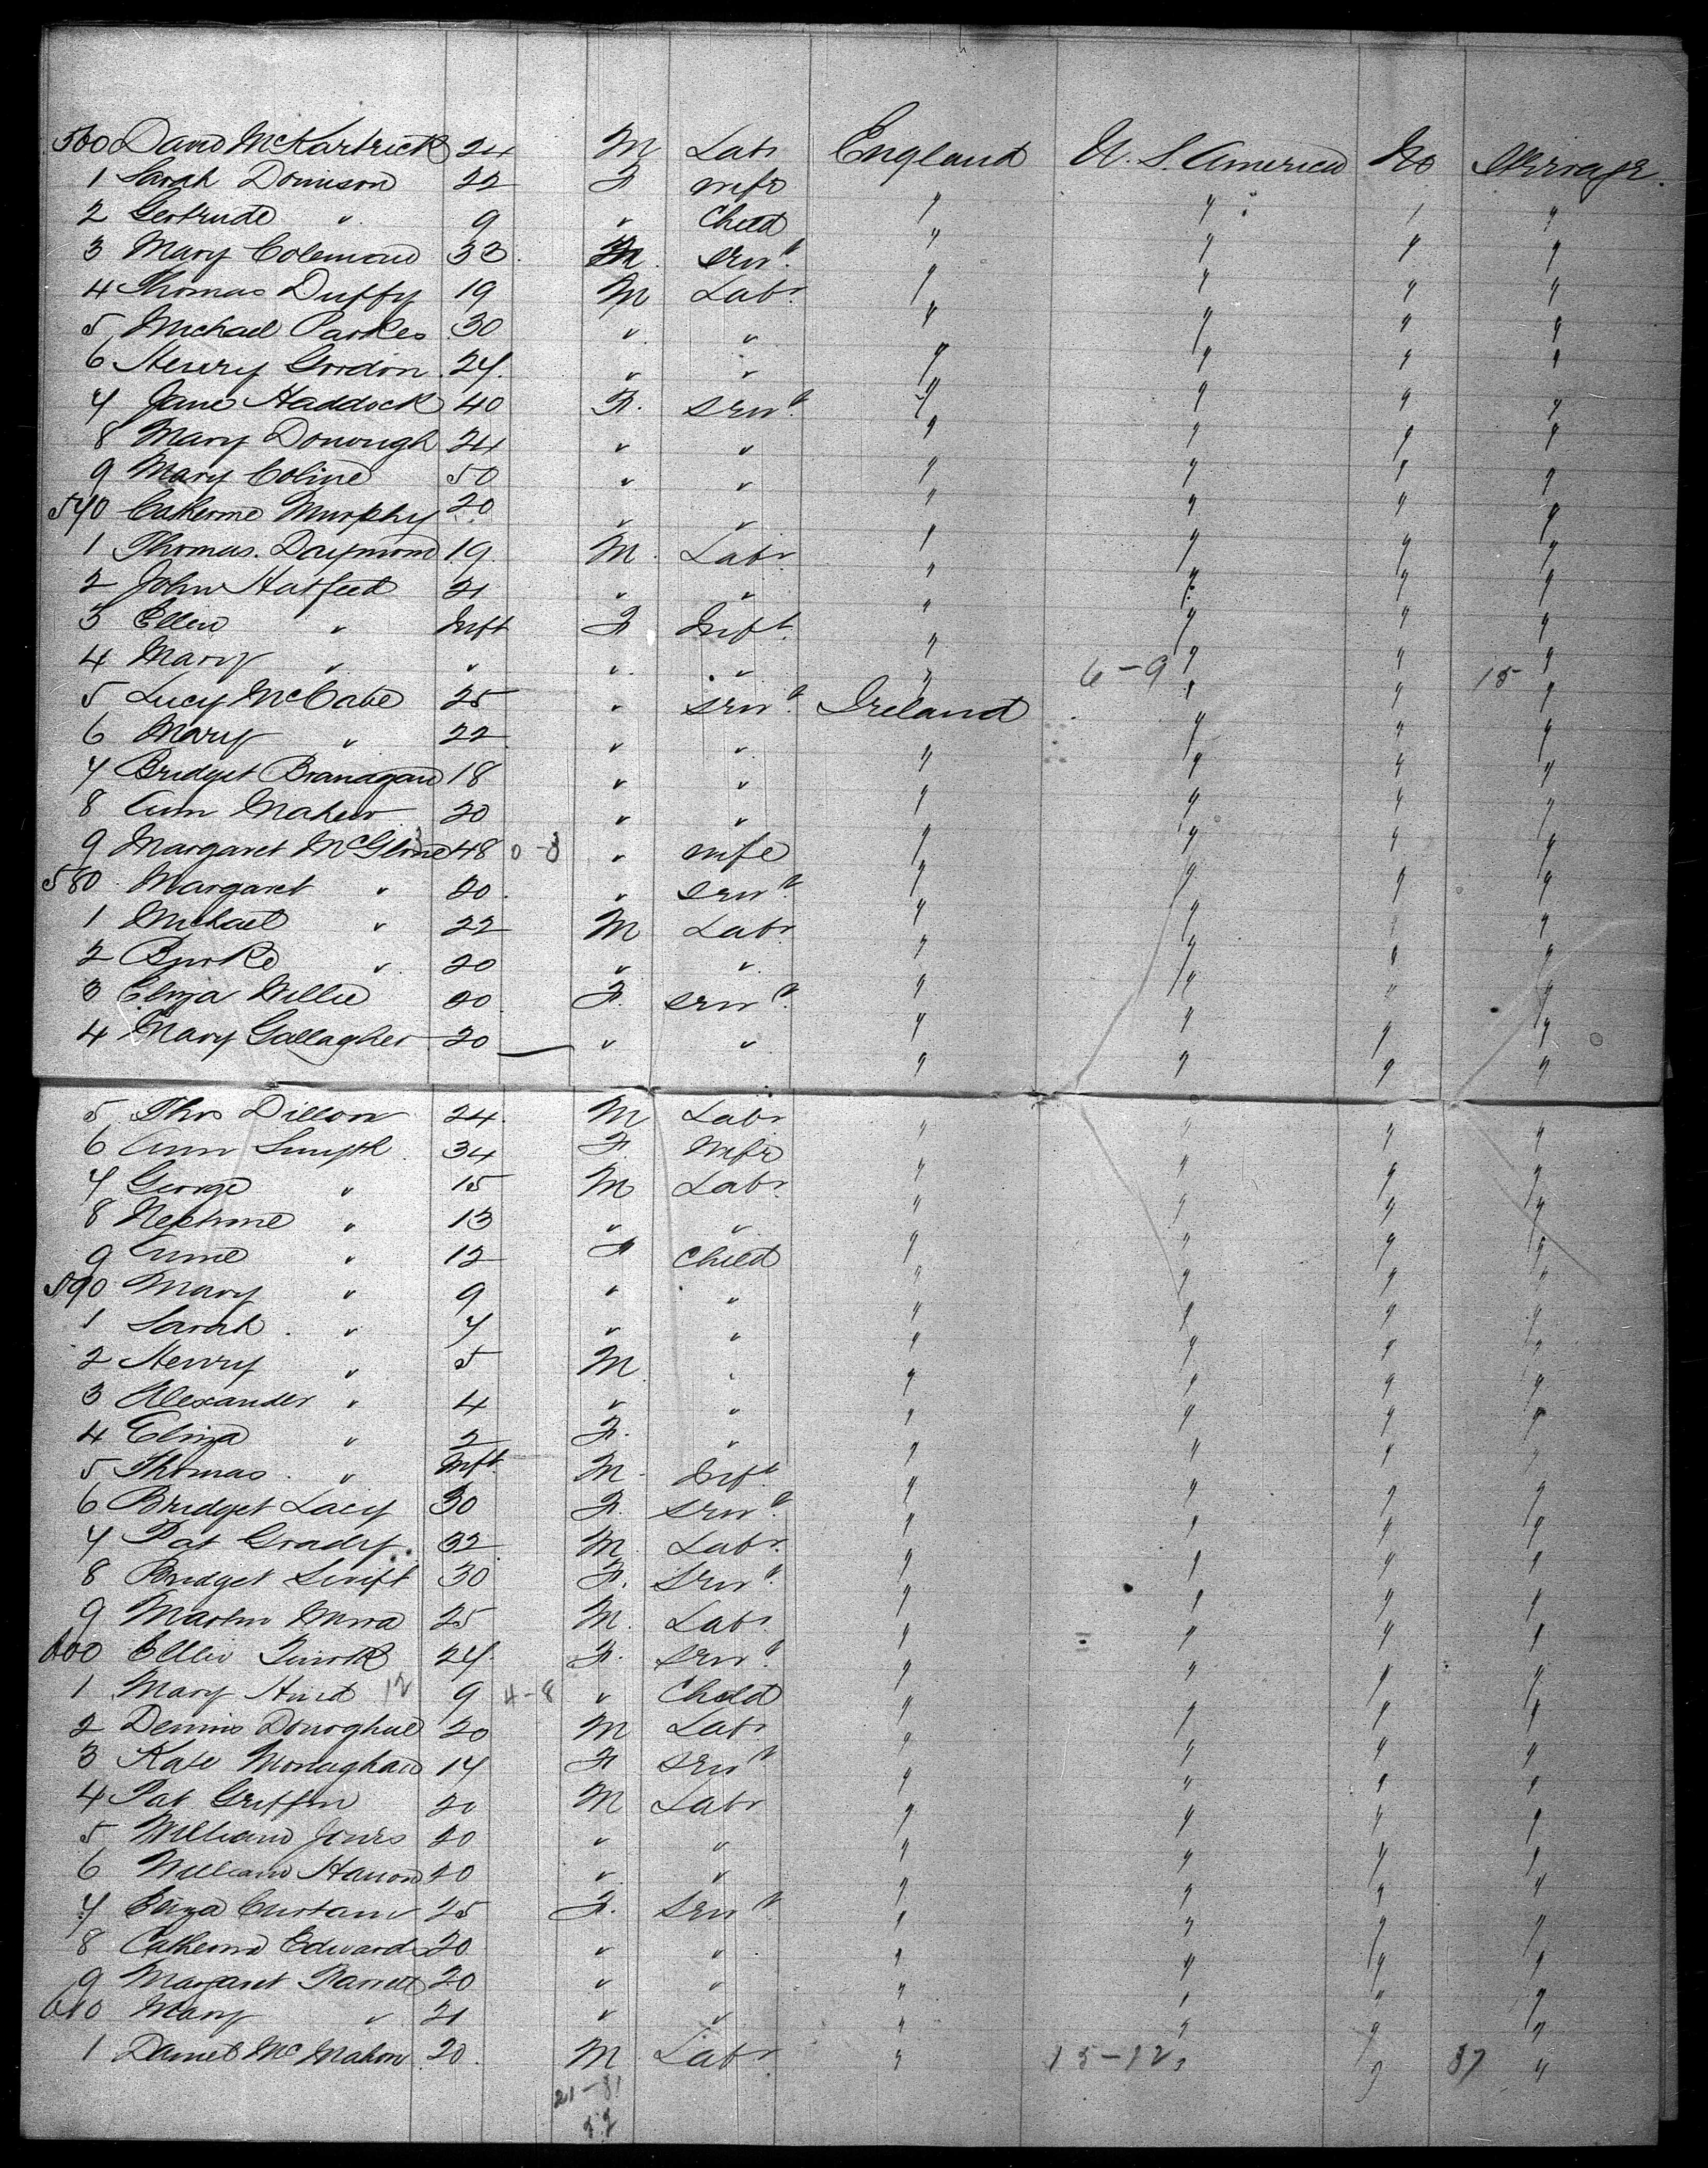 560 David McKartrick 24 M Labr England U. S. America No Steerage
1 Sarah Donnison 22 F wife " " " "
2 Gertrude " 9 " Child " " " "
3 Mary Colemond 33 F servt " " " "
4 Thomas Duffy 19 M Labr " " " "
5 Michael Parkes 30 " " " " " "
6 Henry Gordon 24 " " " " " "
7 Jane Haddock 40 F. servt " " " "
8 Mary Donough 24 " " " " " "
9 Mary Coline 50 " " " " " "
570 Catherine Murphy 20 " " " " " "
1 Thomas Daymond 19 M Labr " " " "
2 John Hatfeed 21 " " " " " "
3 Ellen " Inft F Inft " " " "
4 Mary " " " " " 6-9 " " 15 "
5 Lucy McCabe 25 " servt Ireland " " "
6 Mary " 22 " " " " " "
7 Bridget Branagan 18 " " " " " "
8 Ann Maher 20 " " " " " "
9 Margaret McGlone 48 0-8 " wife " " " "
580 Margaret " 20 " servt " " " "
1 Michael " 22 M Labr " " " "
2 Burke " 20 " " " " " "
3 Eliza Willie 20 F. servt " " " "
4 Mary Gallagher 20 " " " " " "
5 Thos Dillon 24 M Labr " " " "
6 Ann Smyth 34 F wife " " " "
7 George " 15 M Labr " " " "
8 Neptune " 13 " " " " " "
9 Anne " 12 F Child " " " "
590 Mary " 9 " " " " " "
1 Sarah " 7 " " " " " "
2 Henry " 5 M " " " " "
3 Alexander " 4 " " " " " "
4 Eliza " 2 F. " " " " "
5 Thomas " Inft M Inft " " " "
6 Bridget Lacy 30 F. servt " " " "
7 Pat Grady 32 M Labr " " " "
8 Bridget Swift 30 F. servt " " " "
9 Martin 25 M. Labr " " " "
600 Ellen 24 F. servt " " " "
1 Mary Hurd 12 9 4-8 " Child " " " "
2 Dennis Donoghue 20 M Labr " " " "
3 Kate Monaghan 17 F servt " " " "
4 Pat Griffin 20 M Labr " " " "
5 William Jones 20 " " " " " "
6 William Hanon 20 " " " " " "
7 Eliza 25 F. servt " " " "
8 Catherine Edwards 20 " " " " " "
9 Margaret Barrett 20 " " " " " "
610 Mary " 21 " " " " " "
1 Daniel McMahon 20 M Labr " 15-12 " " 37 "
21-31